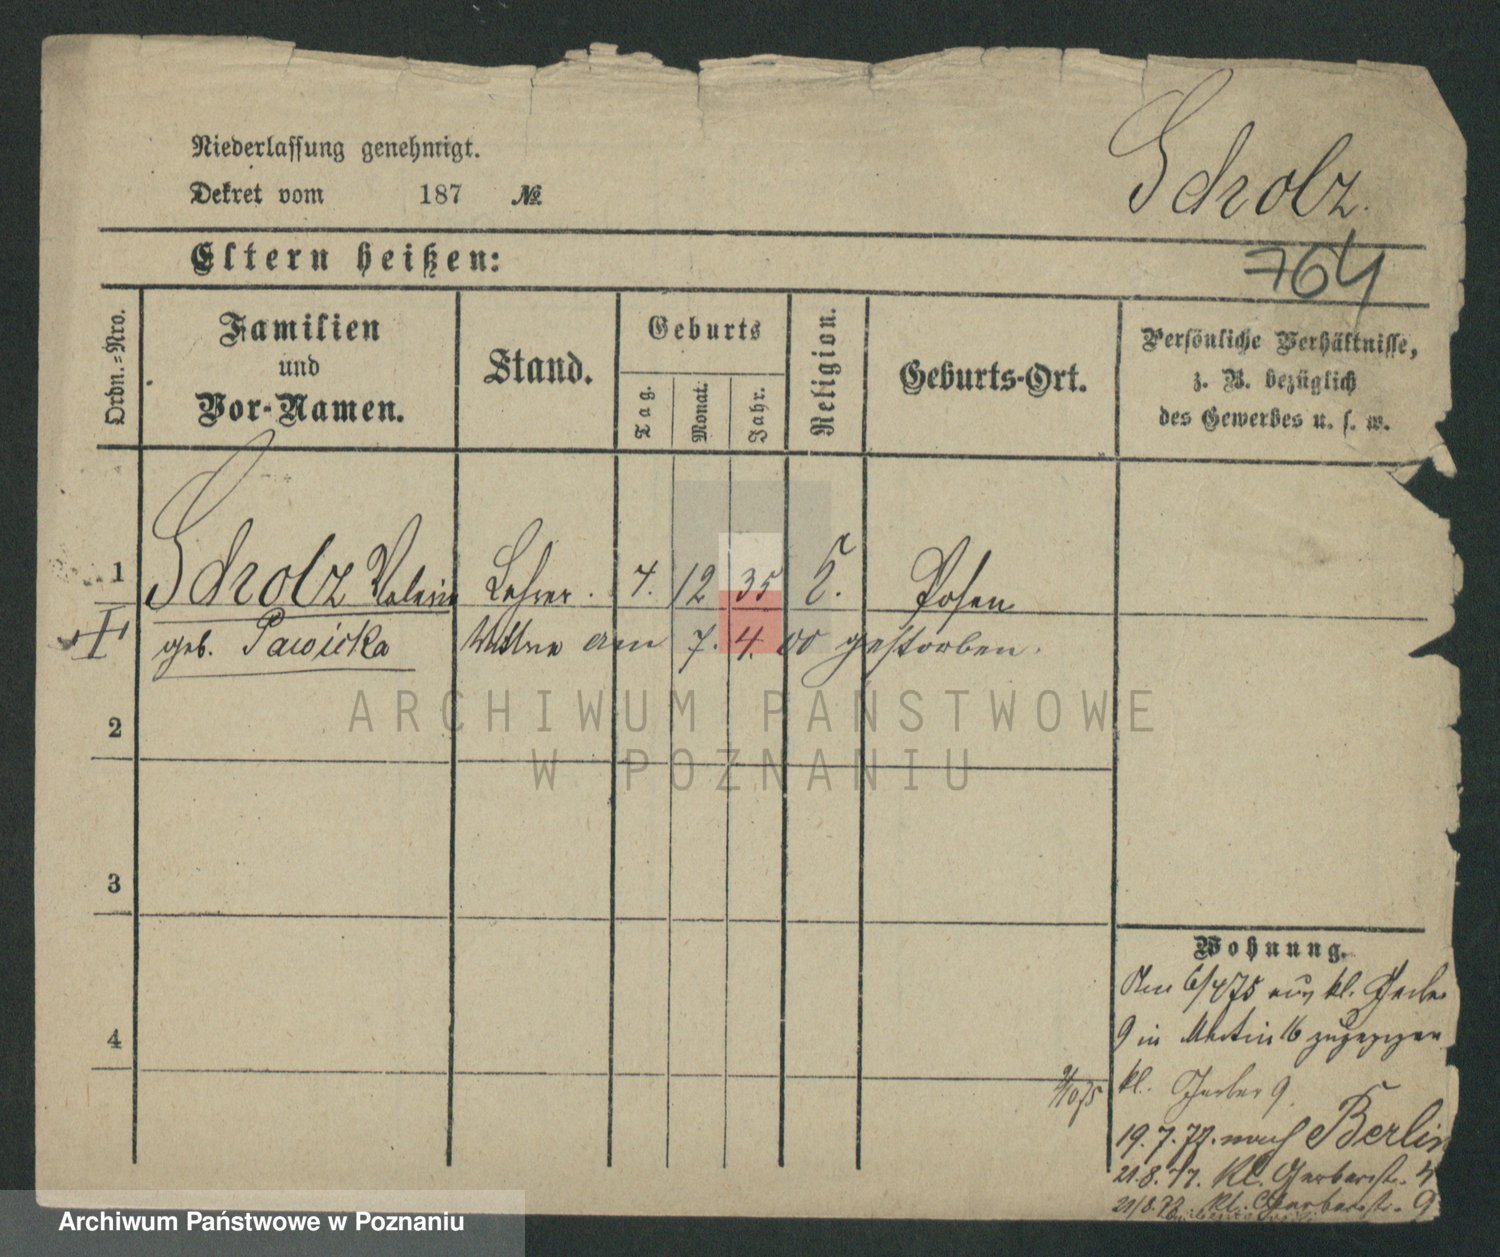 Niederlassung genehmigt.
Dekret vom 187 №
Scholz.
764
Eltern heißen:
Ordn.-Nro.
Familien
und
Vor-Namen.
Stand.
Geburts
Tag.
Monat.
Jahr.
Religion.
Geburts-Ort.
Persönliche Verhältnisse,
z. B. bezüglich
des Gewerbes u. s. w.
1 Scholz Valerie Lehrer. 4. 12 35 Posen
geb. Pawicka Wittwe am 7. 4. 00 gestorben.
2
ARCHIWUM PAŃSTWOWE
W POZNANIU
3
4
Wohnung.
6/4 75 aus kl. Gerber
9 in Martin 16 zugezogen
9/10 75 kl. Gerber 9.
19. 7. 77. nach Berlin
21. 8. 77. Kl. Gerberstr. 4
21/8. 78. kl. Gerberstr. 9
Archiwum Państwowe w Poznaniu